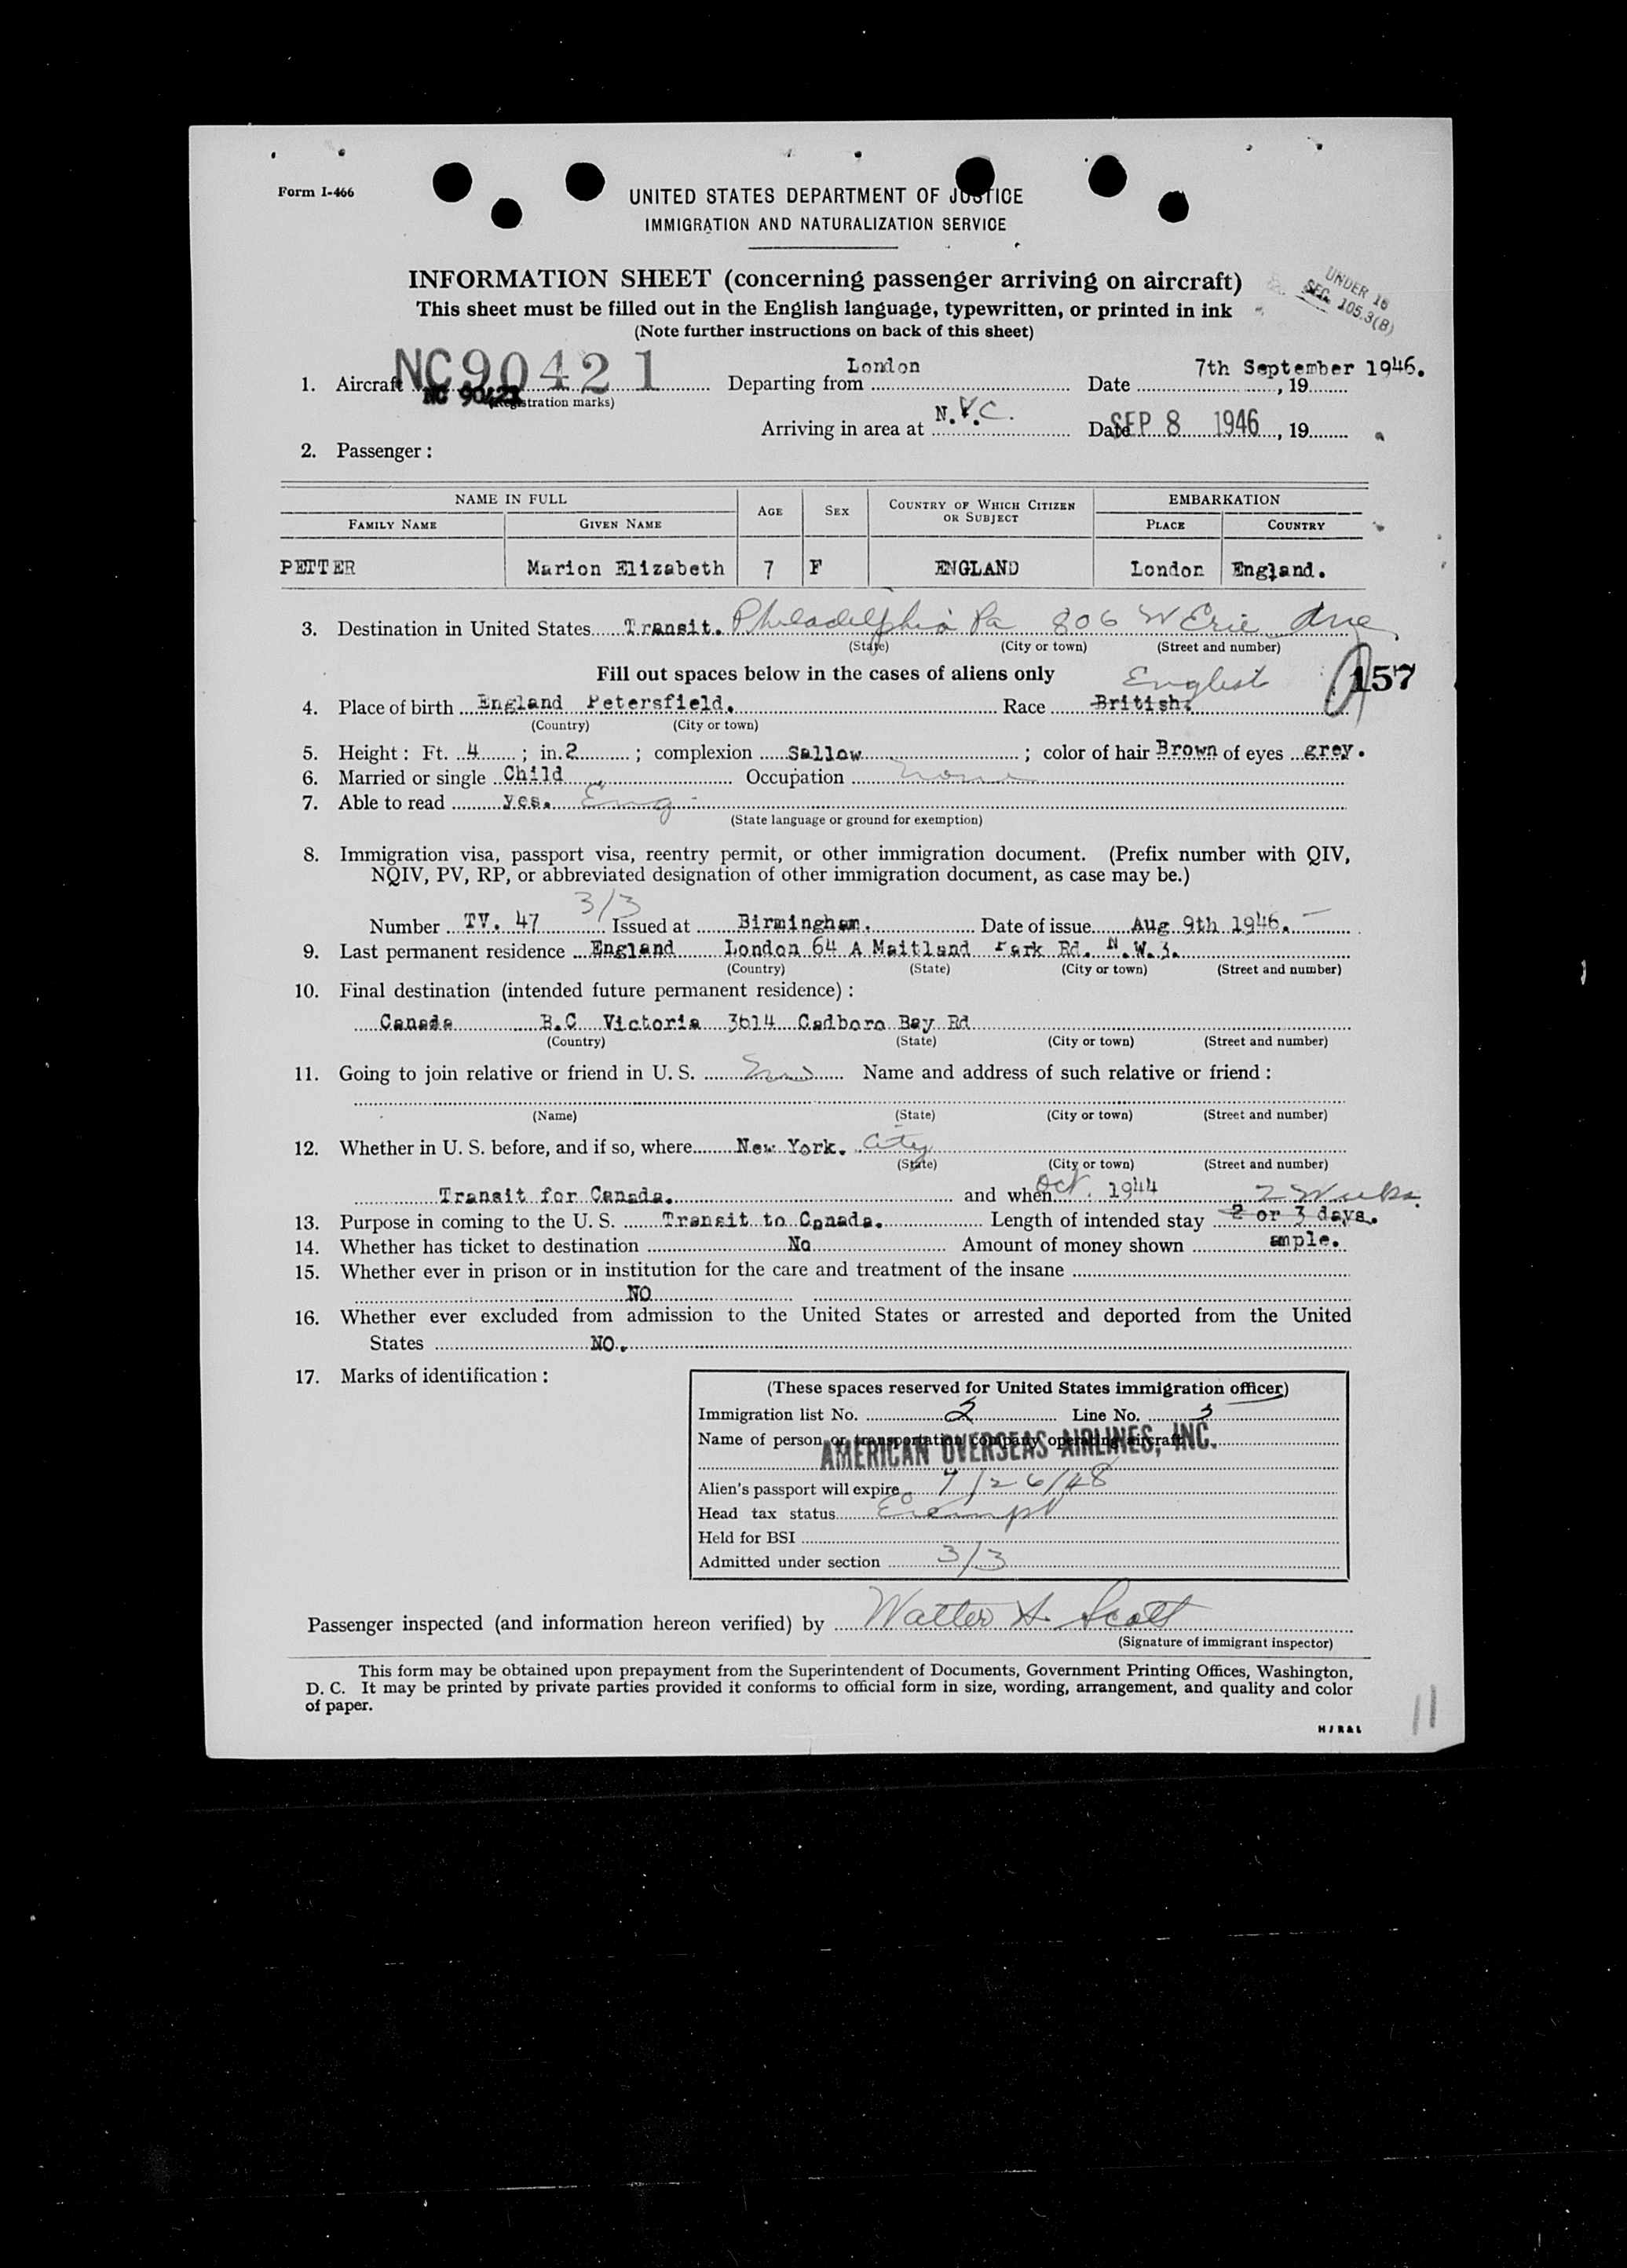 Form I-466
UNITED STATES DEPARTMENT OF JUSTICE
IMMIGRATION AND NATURALIZATION SERVICE
INFORMATION SHEET (concerning passenger arriving on aircraft)
This sheet must be filled out in the English language, typewritten, or printed in ink
(Note further instructions on back of this sheet)
UNDER 16
SEC. 105.3(B)
1. Aircraft NC90421 Departing from London Date 7th September 1946. , 19
NC 90421 (Registration marks)
Arriving in area at N.Y.C. Date SEP 8 1946 , 19
2. Passenger :
NAME IN FULL AGE SEX COUNTRY OF WHICH CITIZEN OR SUBJECT EMBARKATION
FAMILY NAME GIVEN NAME PLACE COUNTRY
PETTER Marion Elizabeth 7 F ENGLAND London England.
3. Destination in United States Transit. Philadelphia Pa 806 W Erie Ave
(State) (City or town) (Street and number)
Fill out spaces below in the cases of aliens only English 157
4. Place of birth England Petersfield. Race British.
(Country) (City or town)
5. Height : Ft. 4 ; in. 2 ; complexion Sallow ; color of hair Brown of eyes grey.
6. Married or single Child Occupation none
7. Able to read yes. Eng.
(State language or ground for exemption)
8. Immigration visa, passport visa, reentry permit, or other immigration document. (Prefix number with QIV,
NQIV, PV, RP, or abbreviated designation of other immigration document, as case may be.)
3/3
Number TV. 47 Issued at Birmingham. Date of issue Aug 9th 1946.
9. Last permanent residence England London 64 A Maitland Park Rd. N.W.3.
(Country) (State) (City or town) (Street and number)
10. Final destination (intended future permanent residence) :
Canada B.C Victoria 3614 Cadboro Bay Rd
(Country) (State) (City or town) (Street and number)
11. Going to join relative or friend in U. S. Name and address of such relative or friend :
(Name) (State) (City or town) (Street and number)
12. Whether in U. S. before, and if so, where New York. City
(State) (City or town) (Street and number)
Transit for Canada. and when Oct. 1944 2 Weeks.
13. Purpose in coming to the U. S. Transit to Canada. Length of intended stay 2 or 3 days.
14. Whether has ticket to destination No Amount of money shown ample.
15. Whether ever in prison or in institution for the care and treatment of the insane
NO
16. Whether ever excluded from admission to the United States or arrested and deported from the United
States NO.
17. Marks of identification :
(These spaces reserved for United States immigration officer)
Immigration list No. 2 Line No. 3
Name of person or transportation company operating aircraft
AMERICAN OVERSEAS AIRLINES, INC.
Alien's passport will expire 7/26/48
Head tax status Exempt
Held for BSI
Admitted under section 3/3
Passenger inspected (and information hereon verified) by Walter H. Scott
(Signature of immigrant inspector)
This form may be obtained upon prepayment from the Superintendent of Documents, Government Printing Offices, Washington,
D. C. It may be printed by private parties provided it conforms to official form in size, wording, arrangement, and quality and color
of paper.
H J R & L
11